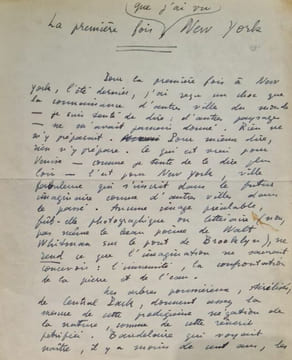 que j'ai vu
La première fois New York
Pour la première fois à New
York, l'été dernier, j'ai reçu un choc que
la connaissance d'autre ville du monde
– je suis tenté de dire : d'autre paysage
– ne m'avait jamais donné. Rien ne
m'y préparait. Pour mieux dire,
rien n'y prépare. Ce qui est vrai pour
Venise – comme je tente de le dire plus
loin – l'est pour New York, ville
fabuleuse qui s'inscrit dans le futur
imaginaire comme d'autre ville dans
le passé. Aucune image préalable,
fût-elle photographique ou littéraire (non,
pas même le beau poème de Walt
Whitman sur le pont de Brooklyn), ne
rend ce que l'imagination ne saurait
concevoir : l'immensité, la confrontation
de la pierre et de l'eau.
Les arbres poussiéreux,
de Central Park, donnent assez la
mesure de cette prodigieuse négation de
la nature, comme de cette rêverie
pétrifiée. Baudelaire qui voyait
naître, il y a moins de cent ans, les